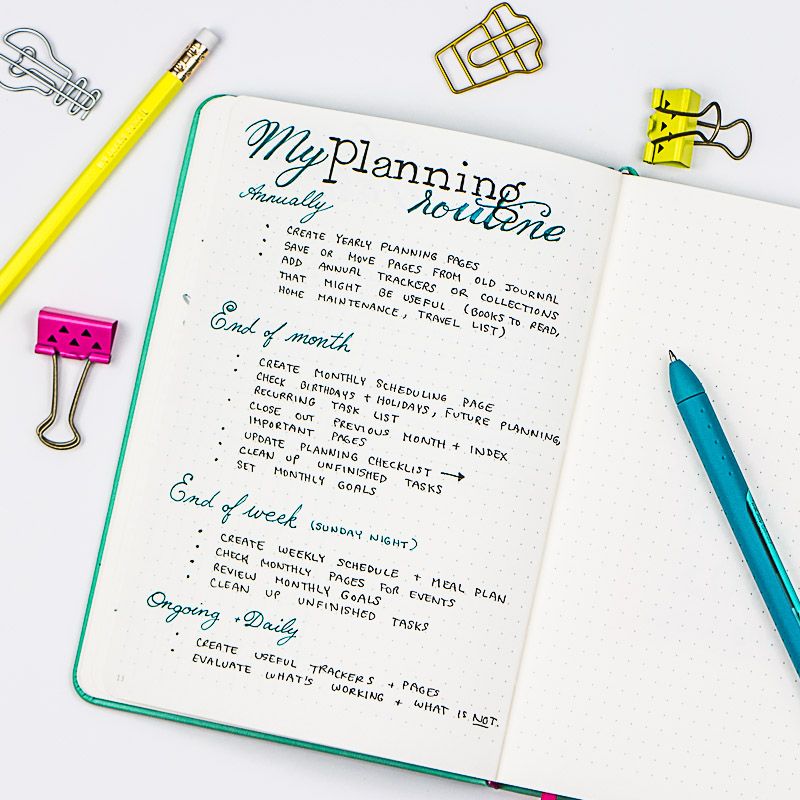 My planning
routine
Annually
• CREATE YEARLY PLANNING PAGES
• SAVE OR MOVE PAGES FROM OLD JOURNAL
• ADD ANNUAL TRACKERS OR COLLECTIONS
THAT MIGHT BE USEFUL (BOOKS TO READ,
HOME MAINTENANCE, TRAVEL LIST)
End of month
• CREATE MONTHLY SCHEDULING PAGE
• CHECK BIRTHDAYS + HOLIDAYS, FUTURE PLANNING,
RECURRING TASK LIST
• CLOSE OUT PREVIOUS MONTH + INDEX
IMPORTANT PAGES
• UPDATE PLANNING CHECKLIST →
• CLEAN UP UNFINISHED TASKS
• SET MONTHLY GOALS
End of week (SUNDAY NIGHT)
• CREATE WEEKLY SCHEDULE + MEAL PLAN
• CHECK MONTHLY PAGES FOR EVENTS
• REVIEW MONTHLY GOALS
• CLEAN UP UNFINISHED TASKS
Ongoing + Daily
• CREATE USEFUL TRACKERS + PAGES
• EVALUATE WHAT'S WORKING + WHAT IS NOT.